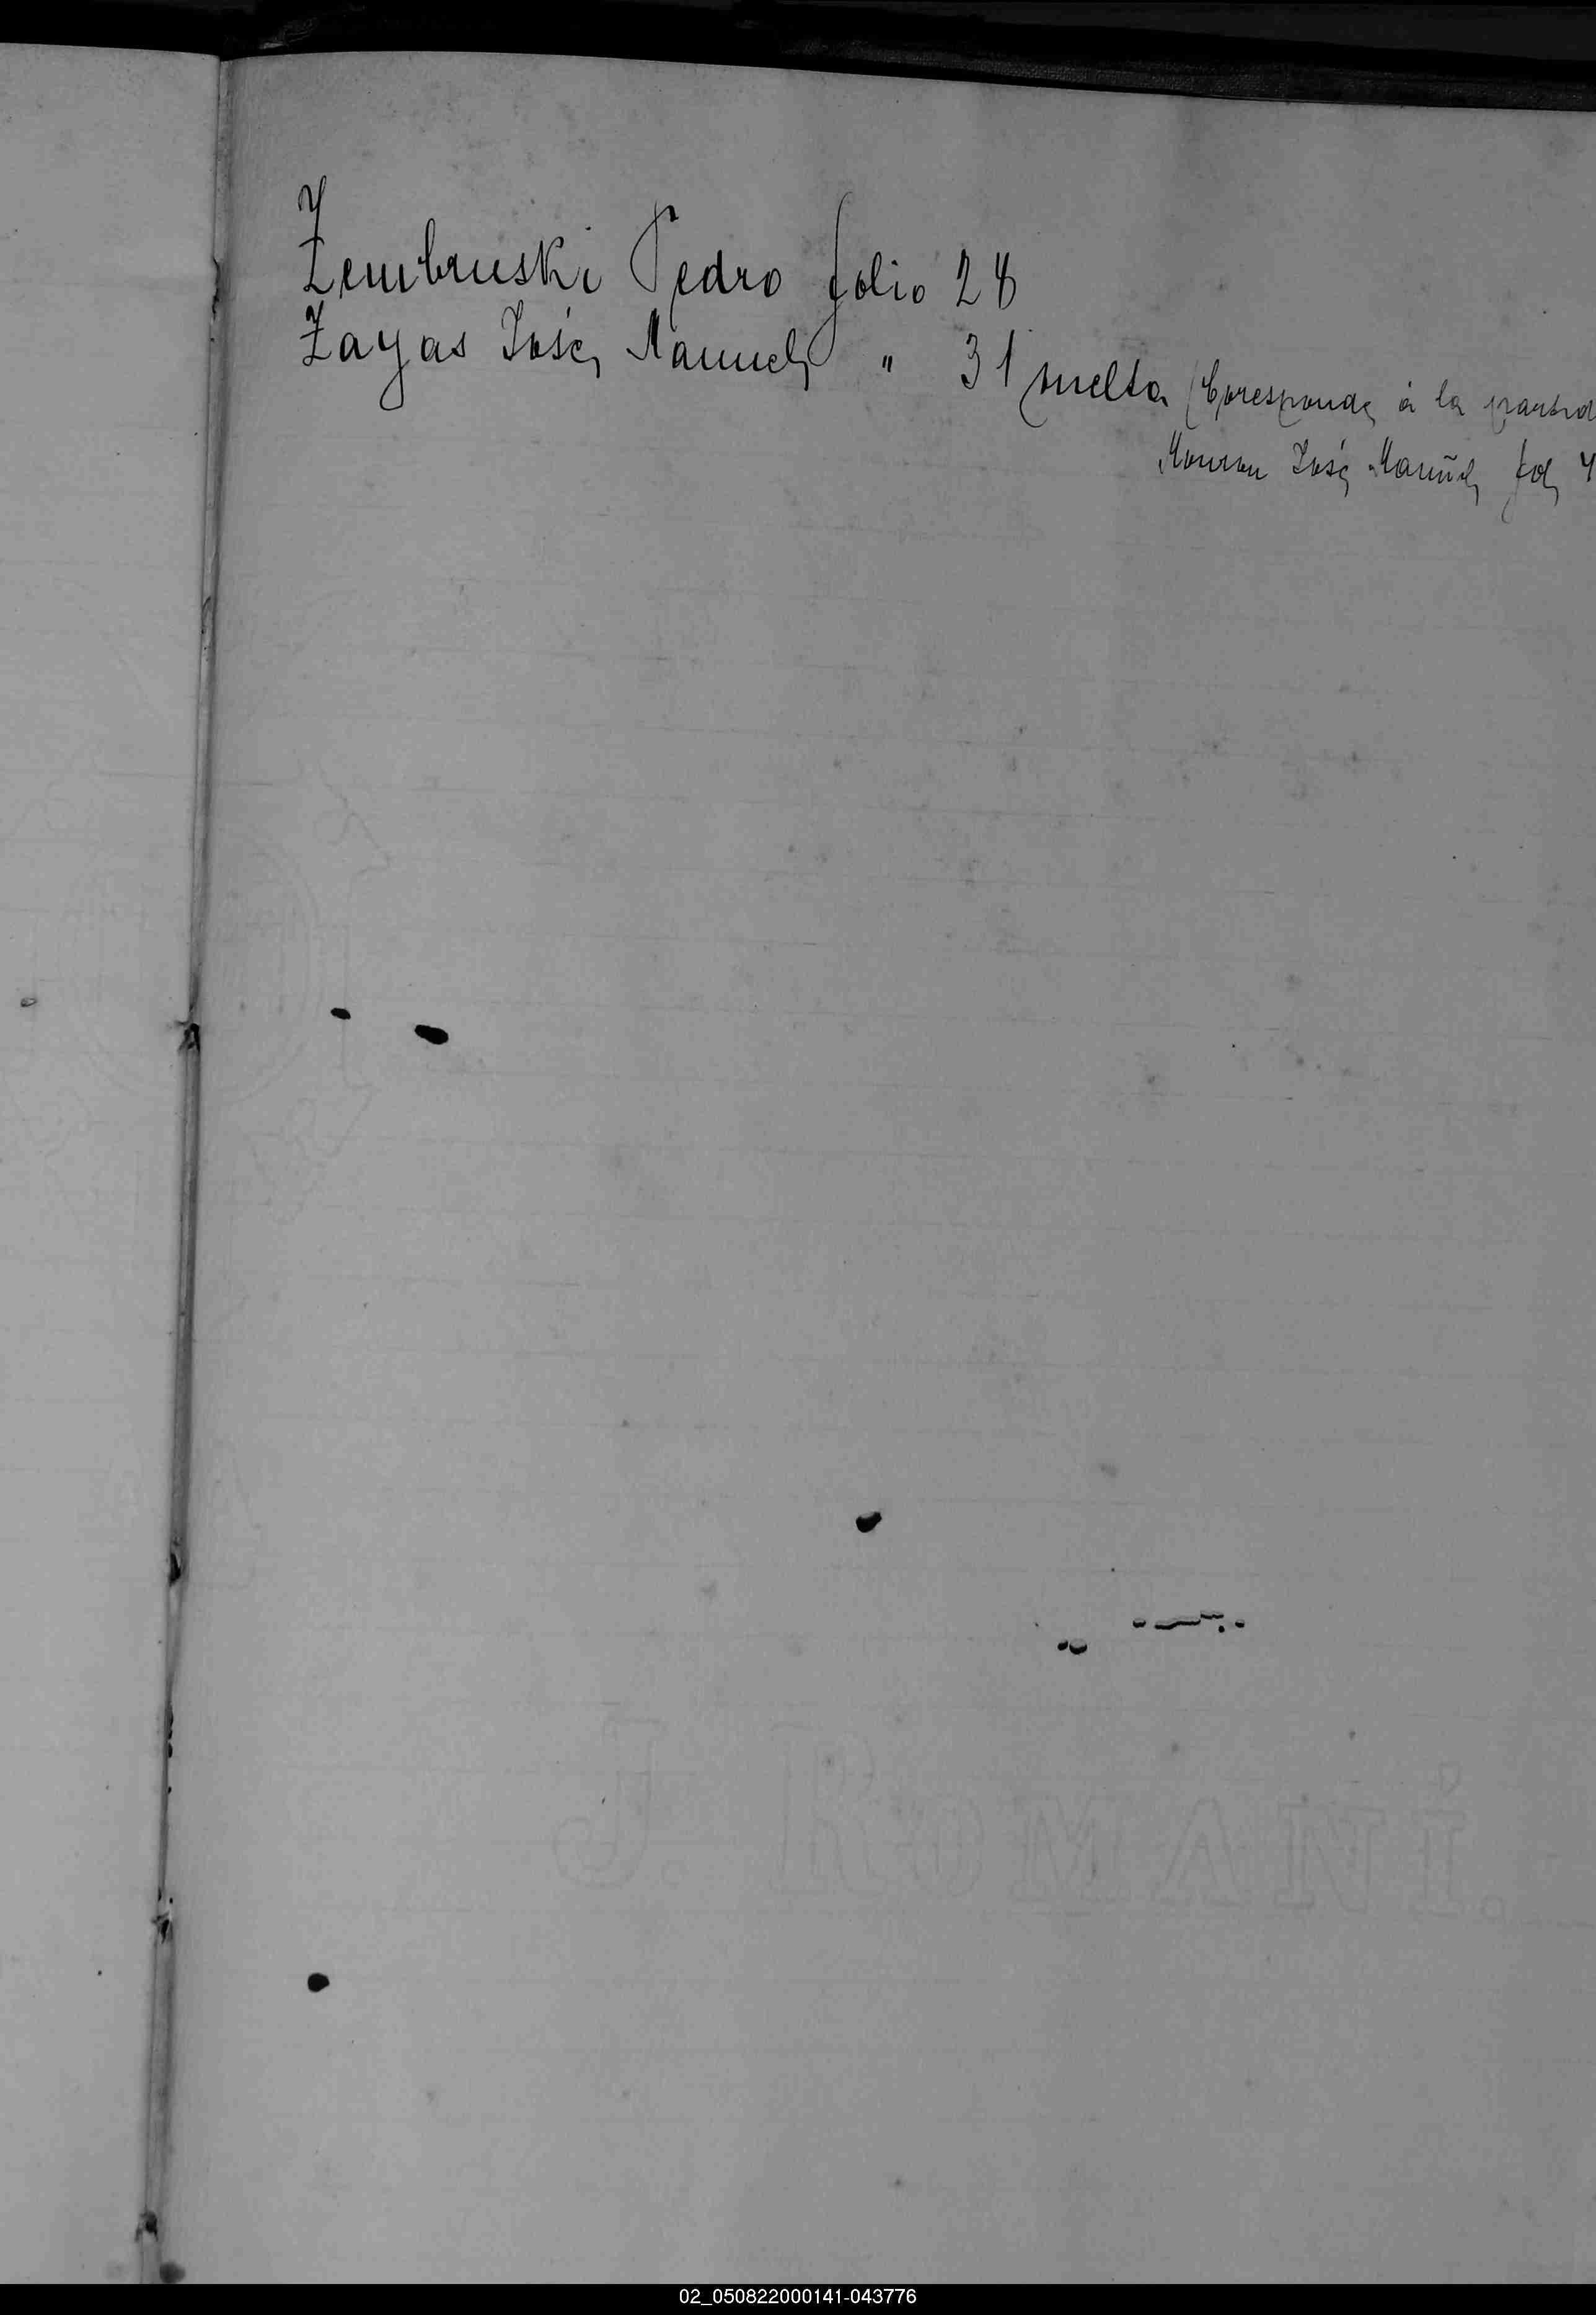 Z
Zembruski Pedro folio 28
Zayas José Manuel " 31 vuelta (Coresponde á la partid
José Manuel fol 4
J. ROMANÍ.
02_050822000141-043776